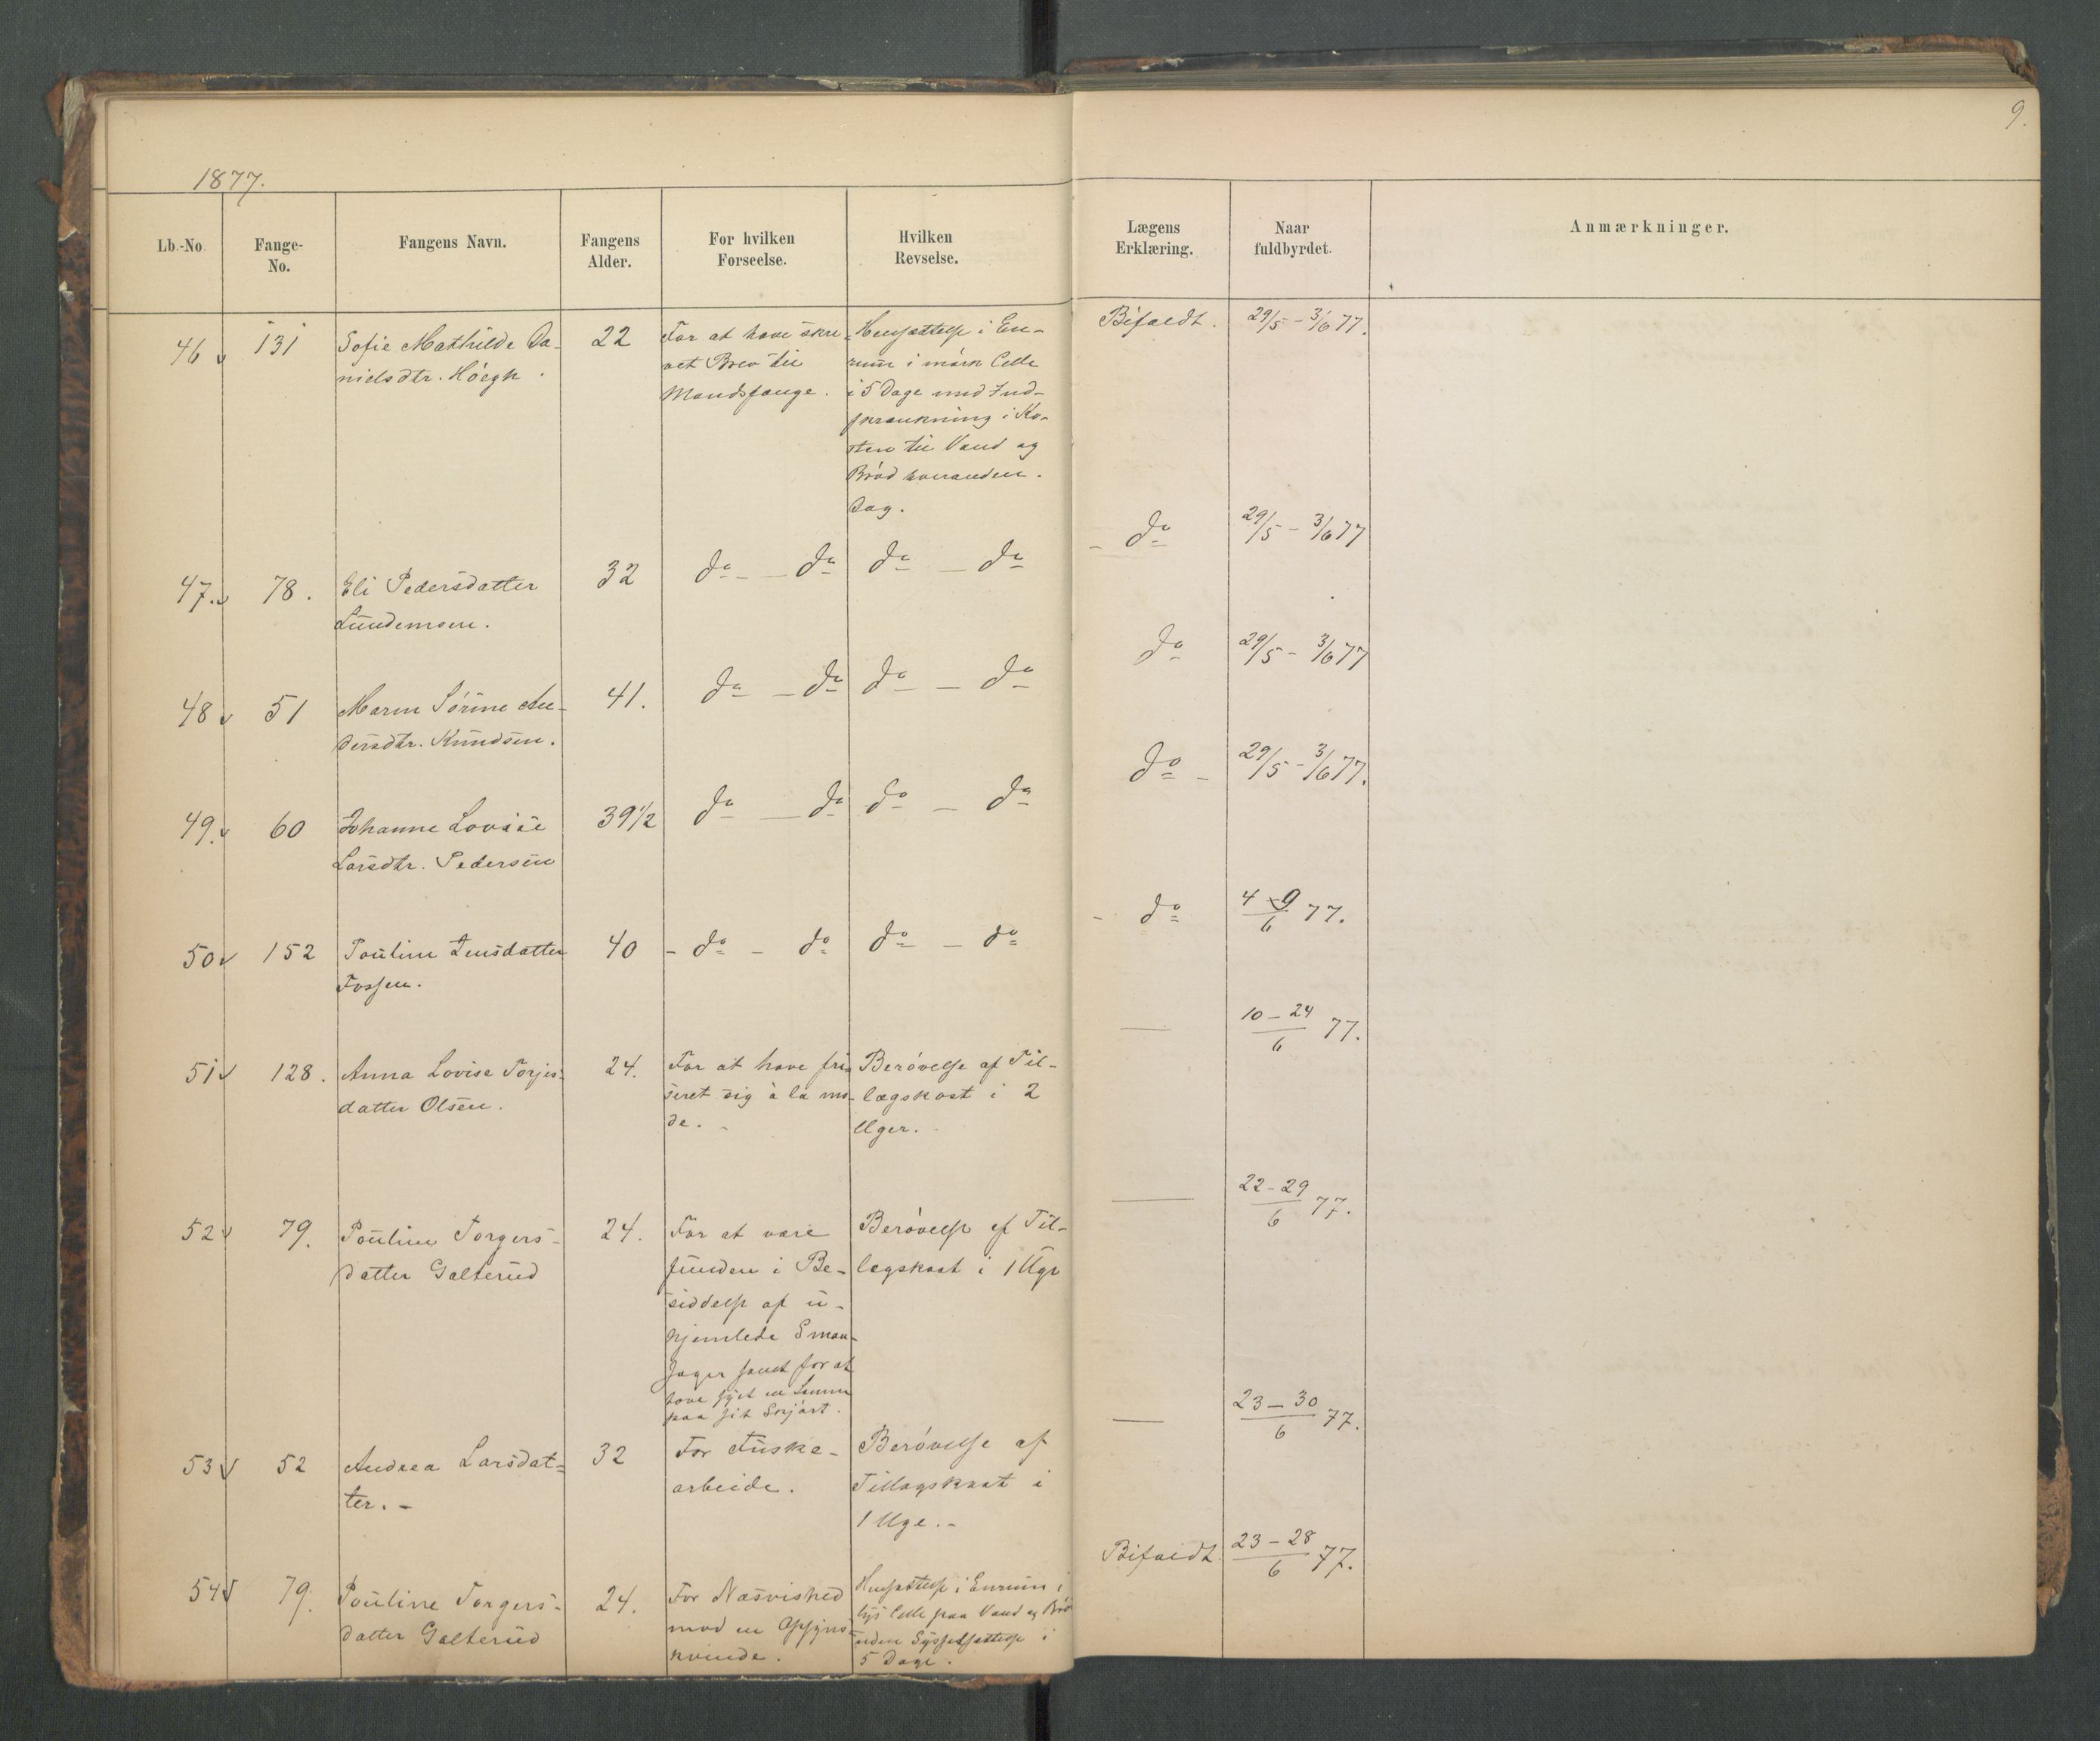 9.
1877.
Lb.-No.
Fange-
No.
Fangens Navn.
Fangens
Alder.
For hvilken
Forseelse.
Hvilken
Revselse.
Lægens
Erklæring.
Naar
fuldbyrdet.
Anmærkninger.
46 131 Sofie Mathilde Da- 22 For at have skre- Hensættelse i En- Bifaldt. 29/5 - 3/6 77.
nielsdtr. Höegh. vet Brev til rum i mörk Celle
Mandsfange. i 5 Dage med Ind-
skrænkning i Ko-
sten til Vand og
Bröd hveranden
Dag.
47. 78. Eli Pedersdatter 32 do - do do - do - do 29/5 - 3/6 77
Lundemoen.
48 51 Maren Sörine An- 41. do - do do - do do 29/5 - 3/6 77
dersdtr. Knudsen.
49. 60 Johanne Lovise 39 1/2 do - do do - do do - 29/5 - 3/6 77.
Larsdtr. Pedersen
50 152 Pauline Jensdatter 40 - do - do do - do - do 4-9/6 77.
Fossen.
51 128. Anna Lovise Torjes- 24. For at have fri- Berövelse af Til- — 10-24/6 77.
datter Olsen. seret sig à la mo- lægskost i 2
de. Uger.
52 79. Pauline Torgers- 24. For at være Berövelse af Til- — 22-29/6 77.
datter Galterud funden i Be- lægskost i 1 Uge
siddelse af u-
hjemlede Smaa-
sager samt for at
have syet en Lomme
paa sit Skjört.
53 52 Andrea Larsdat- 32 For Fuske- Berövelse af — 23-30/6 77.
ter. - arbeide. Tillægskost i
1 Uge. -
54 79. Pauline Torgers- 24. For Næsvished Hensættelse i Enrum i Bifaldt. 23-28/6 77.
datter Galterud mod en Opsyns- lys Celle paa Vand og Bröd
kvinde. uden Sysselsættelse i
5 Dage.